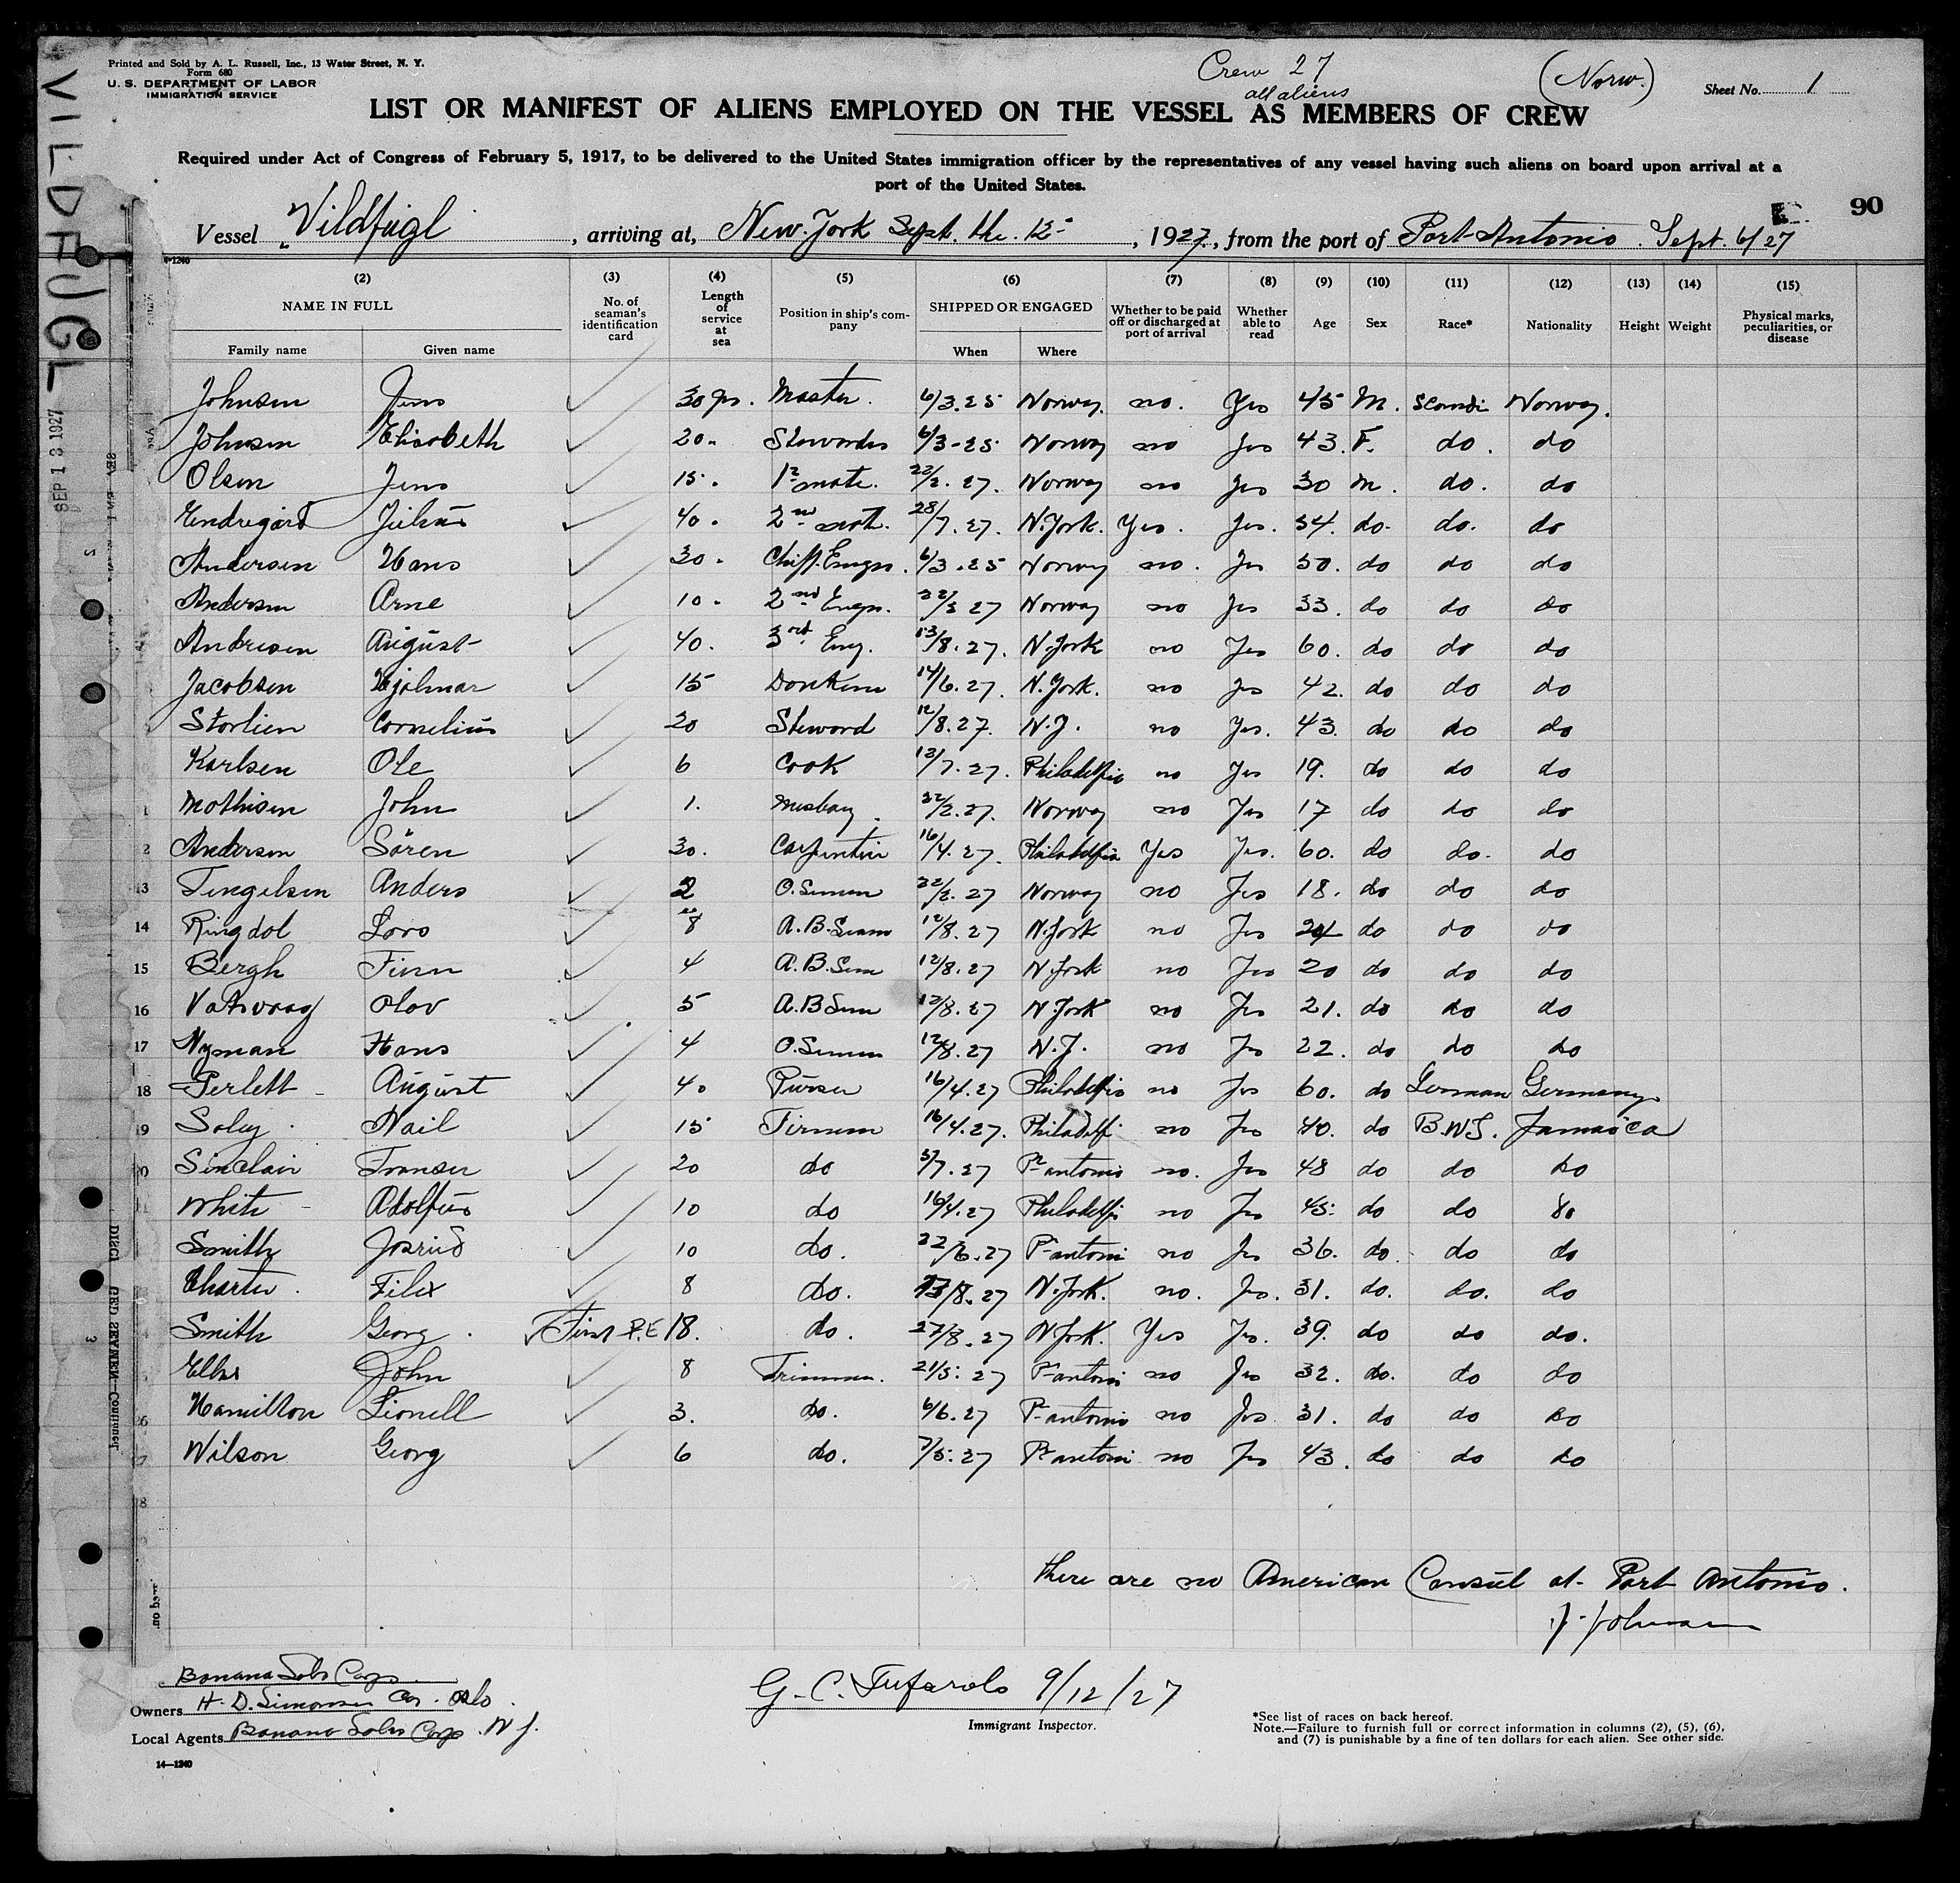 Printed and Sold by A. L. Russell, Inc., 13 Water Street, N. Y.
Form 680
U. S. DEPARTMENT OF LABOR
IMMIGRATION SERVICE
Crew 27
all aliens
(Norw.)
Sheet No. 1
LIST OR MANIFEST OF ALIENS EMPLOYED ON THE VESSEL AS MEMBERS OF CREW
Required under Act of Congress of February 5, 1917, to be delivered to the United States immigration officer by the representatives of any vessel having such aliens on board upon arrival at a
port of the United States.
90
Vessel "Vildfugl, arriving at, New. York Sept. the. 12-, 1927, from the port of Port-Antonio. Sept. 6/27
VILDFUGL
SEP 13 1927
(2) (3) (4) (5) (6) (7) (8) (9) (10) (11) (12) (13) (14) (15)
NAME IN FULL Family name Given name
No. of seaman's identification card
Length of service at sea
Position in ship's company
SHIPPED OR ENGAGED When Where
Whether to be paid off or discharged at port of arrival
Whether able to read
Age Sex Race* Nationality Height Weight
Physical marks, peculiarities, or disease
Johnsen Jens 30 yrs. Master. 6/3.25 Norway. no. Yes 45 M. Scandi Norway.
Johnsen Elisabeth 20" 6/3-25 Norway no Yes 43. F. do. do
Olsen Jens 15. 1st mate. 22/2.27. Norway no Yes 30 M. do. do
Julius 40. 28/7.27. N.York. Yes. Yes. 54. do. do. do
Andersen Hans 30. 6/3.25 Norway no. Yes 50. do do do
Andersen Arne 10. 2nd Engn. 27 Norway no Yes 33. do do do
Andresen August 40. 3rd Eng. 13/8.27. N.York no Yes 60. do do do
Jacobsen Hjalmar 15 14/6.27. N.York. no Yes 42. do do do
Storlien Cornelius 20 Steward 12/8.27. N.Y. no Yes. 43. do do do
Karlsen Ole 6 Cook 13/7.27. Philadelfia no Yes 19. do do do
Mathisen John 1. 22/2.27. Norway no Yes 17 do do do
Andersen Sören 30. 16/4.27. Philadelfia Yes Yes. 60. do do. do
13 Anders 2 22/2.27 Norway no Yes 18. do do do
14 Ringdal 8 12/8.27 N.York no Yes 24 do do do
15 Bergh Finn 4 12/8.27 N.York no Yes 20 do do do
16 Olav 5 12/8.27 N.York no Yes 21. do do do
17 Nyman Hans 4 12/8.27 N.Y. no Yes 22. do do do
18 August 40 Purser 16/4.27 Philadelfia no Yes 60. do German Germany
19 Nail 15 16/4.27. Philadelfi no Yes 40. do B.W.I. Jamaica
Sinclair 20 do 27 Pt antonio no. Yes 48 do do do
White 10 do 16/4.27 Philadelfi no Yes 45. do do do
Smith 10 do. 22/6.27 Pt antoni no Yes 36. do do do
Felix 8 do. 13/8.27 N.York. no. Yes. 31. do. do. do
Smith Georg. First P.E 18. do. 27/8.27 N.York. Yes Yes. 39. do do do.
John 8 21/5.27 Pt antoni no Yes 32. do. do do
26 Hamilton Lionell 3. do. 6/6.27 Pt antonio no Yes 31. do do do
Wilson Georg 6 do. 7/5.27 Pt antoni no Yes 43. do do do
there are no American Consul at Port Antonio.
J. Johnsen
Banana Sales Corp
Owners H. D. Simonsen Co. Oslo.
Local Agents Banana Sales Corp. N.Y.
9/12/27
Immigrant Inspector.
*See list of races on back hereof.
Note.—Failure to furnish full or correct information in columns (2), (5), (6),
and (7) is punishable by a fine of ten dollars for each alien. See other side.
14—1240